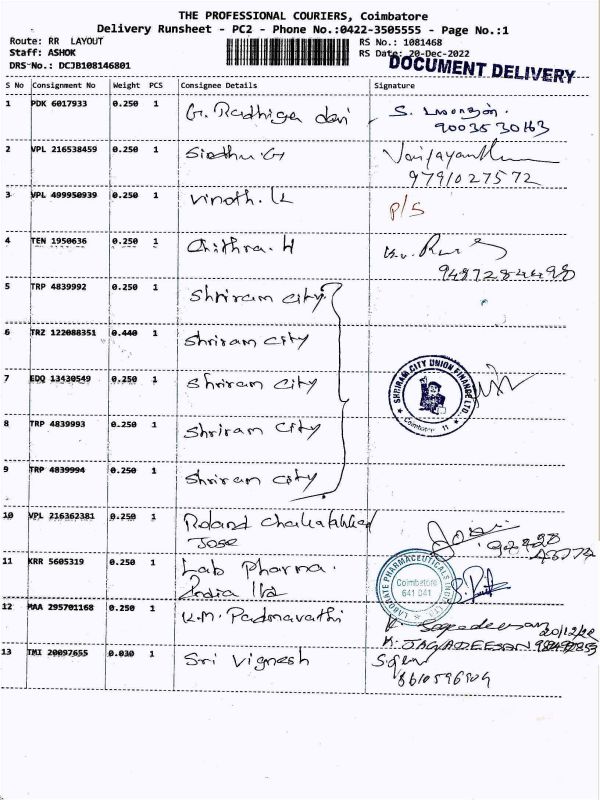 THE PROFESSIONAL COURIERS, Coimbatore
Delivery Runsheet - PC2 - Phone No.:0422-3505555 - Page No.:1
Route: RR LAYOUT RS No.: 1081468
Staff: ASHOK RS Date: 20-Dec-2022
DRS-No.: DCJB108146801 DOCUMENT DELIVERY
S No Consignment No Weight PCS Consignee Details Signature
1 PDK 6017933 0.250 1 G. Radhiga devi
9003530163
2 VPL 216538459 0.250 1 Sindhu G
9791027572
3 VPL 499950939 0.250 1 Vinoth. K P/S
4 TEN 1950636 0.250 1 Chithra. H
5 TRP 4839992 0.250 1 Shriram City
6 TRZ 122088351 0.440 1 Shriram City
7 EDQ 13430549 0.250 1 Shriram City
SHRIRAM CITY UNION FINANCE LTD. Coimbatore 11
8 TRP 4839993 0.250 1 Shriram City
9 TRP 4839994 0.250 1 Shriram City
10 VPL 216362381 0.250 1 Roland
Jose
11 KRR 5605319 0.250 1 Lab Pharma.
India ltd
LABORATE PHARMACEUTICALS INDIA LTD Coimbatore 641 041
12 MAA 295701168 0.250 1 K.M. Padmavathi
K. JAGADEESAN
13 TMI 20097655 0.030 1 Sri Vignesh